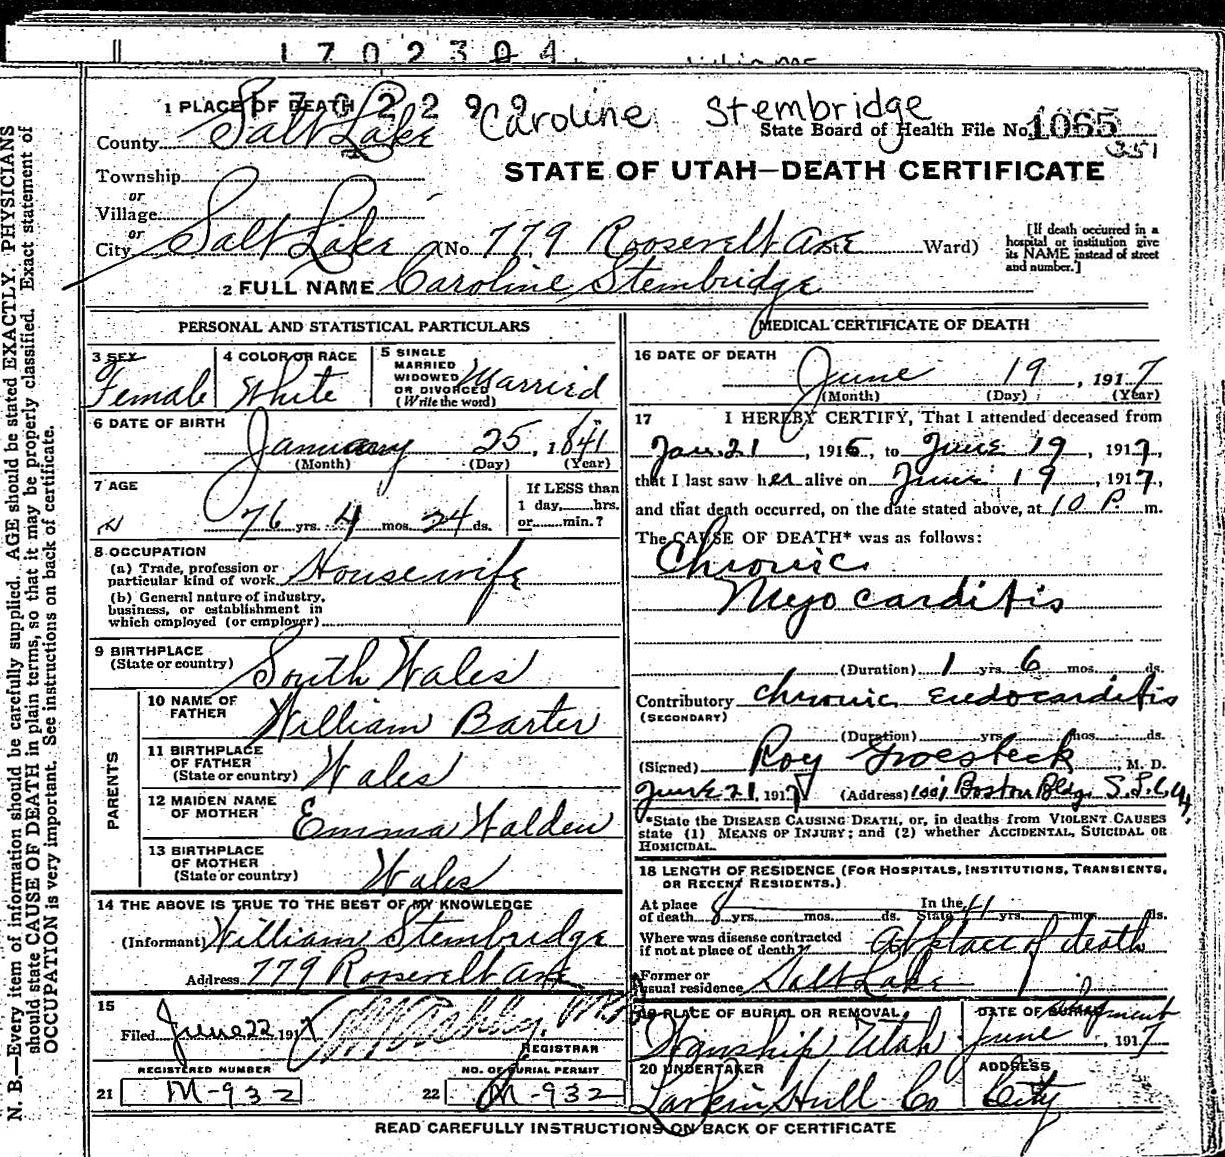 1702304
1702299
Caroline Stembridge
1 PLACE OF DEATH
County Salt Lake
State Board of Health File No. 1065
351
Township
or
Village
or
STATE OF UTAH—DEATH CERTIFICATE
City Salt Lake (No. 779 Roosevelt Ave St. Ward)
[If death occurred in a hospital or institution give its NAME instead of street and number.]
2 FULL NAME Caroline Stembridge
N. B.—Every item of information should be carefully supplied. AGE should be stated EXACTLY. PHYSICIANS
should state CAUSE OF DEATH in plain terms, so that it may be properly classified. Exact statement of
OCCUPATION is very important. See instructions on back of certificate.
PERSONAL AND STATISTICAL PARTICULARS
3 SEX
Female
4 COLOR OR RACE
White
5 SINGLE
MARRIED
WIDOWED
OR DIVORCED
(Write the word)
Married
6 DATE OF BIRTH
January 25, 1841
(Month) (Day) (Year)
7 AGE
76 yrs. 4 mos. 24 ds.
If LESS than
1 day, hrs.
or min.?
8 OCCUPATION
(a) Trade, profession or
particular kind of work Housewife
(b) General nature of industry,
business, or establishment in
which employed (or employer)
9 BIRTHPLACE
(State or country) South Wales
PARENTS
10 NAME OF
FATHER William Barter
11 BIRTHPLACE
OF FATHER
(State or country) Wales
12 MAIDEN NAME
OF MOTHER Emma Walden
13 BIRTHPLACE
OF MOTHER
(State or country) Wales
14 THE ABOVE IS TRUE TO THE BEST OF MY KNOWLEDGE
(Informant) William Stembridge
Address 779 Roosevelt Ave
15
Filed June 22 1917
REGISTRAR
REGISTERED NUMBER
21 M-932
NO. OF BURIAL PERMIT
22 M-932
MEDICAL CERTIFICATE OF DEATH
16 DATE OF DEATH
June 19, 1917
(Month) (Day) (Year)
17 I HEREBY CERTIFY, That I attended deceased from
Jan. 21, 1916, to June 19, 1917,
that I last saw her alive on June 19, 1917,
and that death occurred, on the date stated above, at 10 P. m.
The CAUSE OF DEATH* was as follows:
Chronic
Myocarditis
(Duration) 1 yrs. 6 mos. ds.
Contributory Chronic Endocarditis
(SECONDARY)
(Duration) yrs. mos. ds.
(Signed) Roy Groesbeck, M. D.
June 21, 1917 (Address) 1001 Boston Bldg. S.L. City
*State the DISEASE CAUSING DEATH, or, in deaths from VIOLENT CAUSES
state (1) MEANS OF INJURY; and (2) whether ACCIDENTAL, SUICIDAL OR
HOMICIDAL.
18 LENGTH OF RESIDENCE (FOR HOSPITALS, INSTITUTIONS, TRANSIENTS,
OR RECENT RESIDENTS.)
At place
of death 8 yrs. mos. ds. In the State 41 yrs. mos. ds.
Where was disease contracted
if not at place of death? At place of death
Former or
usual residence Salt Lake
19 PLACE OF BURIAL OR REMOVAL
Utah
DATE OF BURIAL
June, 1917
20 UNDERTAKER
Larkin Hull Co
ADDRESS
City
READ CAREFULLY INSTRUCTIONS ON BACK OF CERTIFICATE